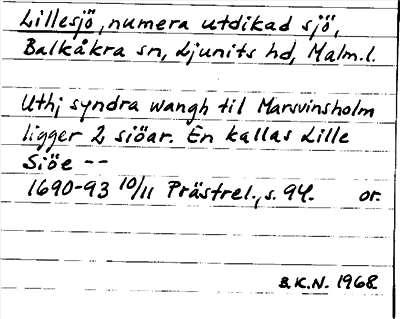 Lillesjö, numera utdikad sjö,
Balkåkra sn, Ljunits hd, Malm.l.
Uthj syndra wangh til Marsvinsholm
ligger 2 siöar. En kallas Lille
Siöe --
1690-93 10/11 Prästrel., s. 94. or.
B.K.N. 1968